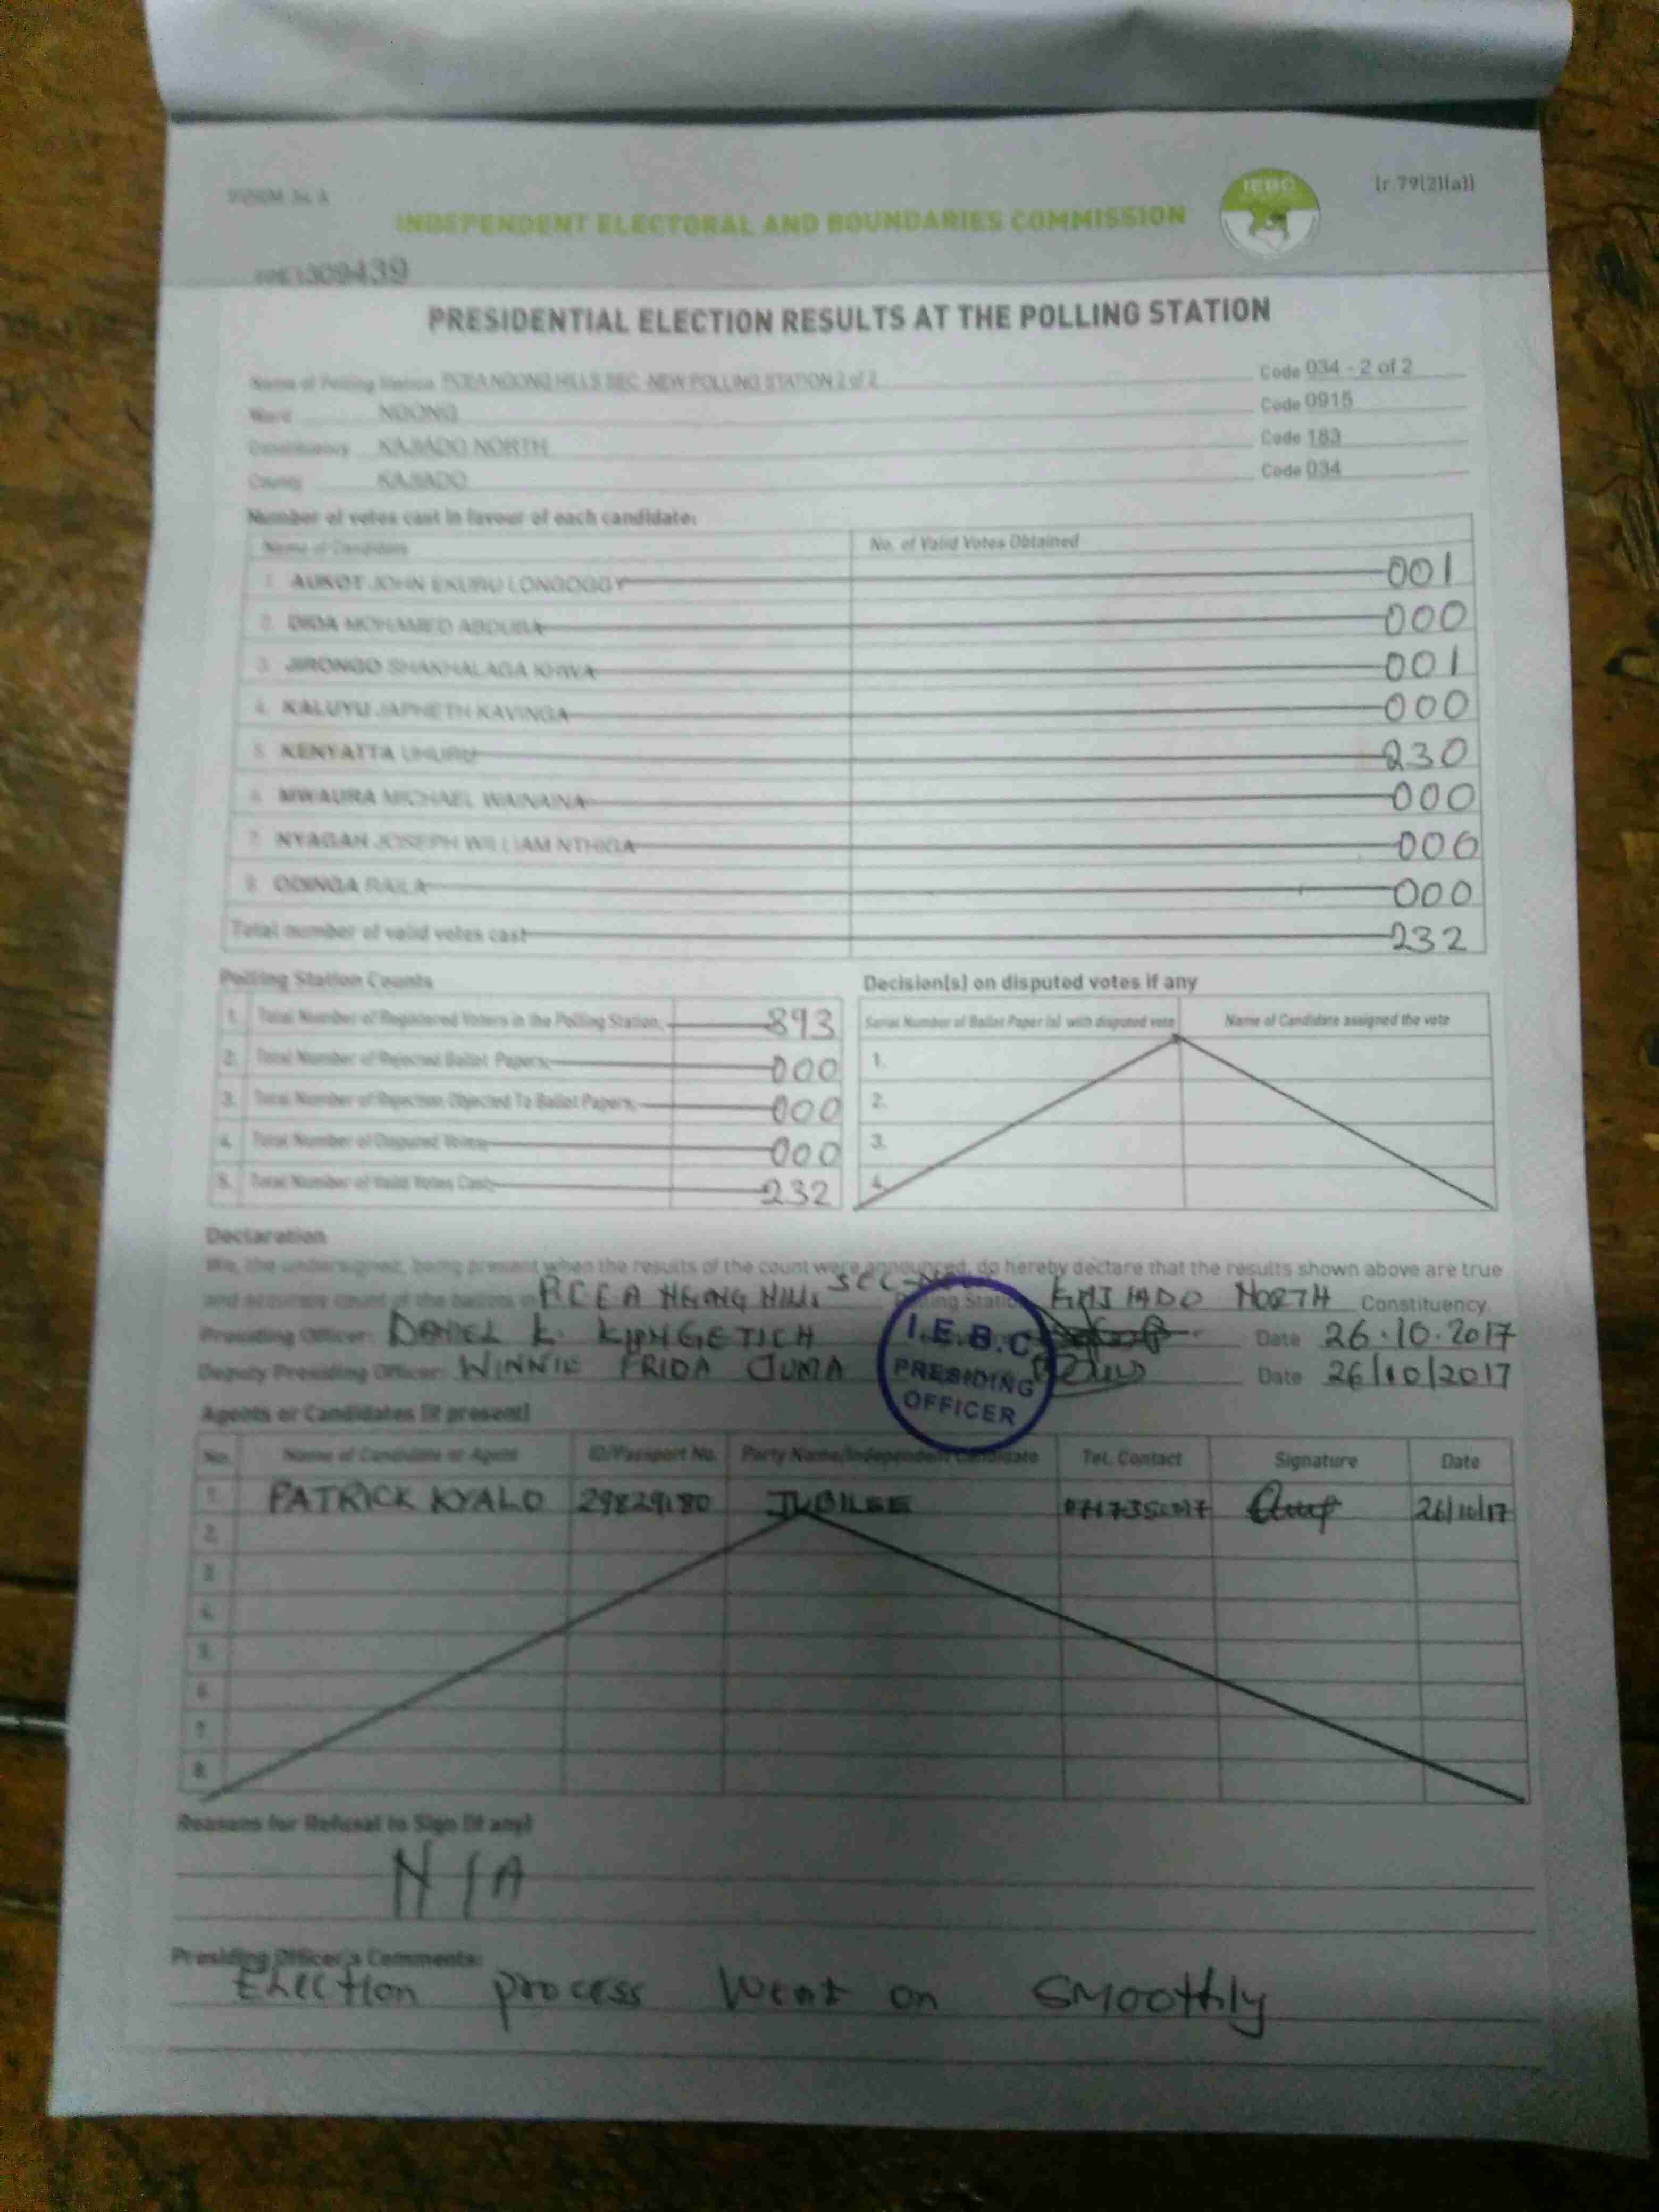 FORM 34 A
(r.79(2)(a))
INDEPENDENT ELECTORAL AND BOUNDARIES COMMISSION
IEBC
1309439
PRESIDENTIAL ELECTION RESULTS AT THE POLLING STATION
Name of Polling Station PCEA NGONG HILLS SEC -NEW POLLING STATION 2 of 2 Code 034 - 2 of 2
Ward NGONG Code 0915
Constituency KAJIADO NORTH Code 183
County KAJIADO Code 034
Number of votes cast in favour of each candidate:
Name of Candidate No. of Valid Votes Obtained
1. AUKOT JOHN EKURU LONGOGGY 001
2. DIDA MOHAMED ABDUBA 000
3. JIRONGO SHAKHALAGA KHWA 001
4. KALUYU JAPHETH KAVINGA 000
5. KENYATTA UHURU 230
6. MWAURA MICHAEL WAINAINA 000
7. NYAGAH JOSEPH WILLIAM NTHIGA 000
8. ODINGA RAILA 000
Total number of valid votes cast 232
Polling Station Counts
1. Total Number of Registered Voters in the Polling Station 893
2. Total Number of Rejected Ballot Papers 000
3. Total Number of Rejection Objected To Ballot Papers 000
4. Total Number of Disputed Votes 000
5. Total Number of Valid Votes Cast 232
Decision(s) on disputed votes if any
Serial Number of Ballot Paper (s) with disputed vote Name of Candidate assigned the vote
1.
2.
3.
4.
Declaration
We, the undersigned, being present when the results of the count were announced, do hereby declare that the results shown above are true
and accurate count of the ballots in PCEA NGONG HILLS SEC-NEW Polling Station KAJIADO NORTH Constituency.
Presiding Officer: DANIEL K. KIPNGETICH Date 26.10.2017
Deputy Presiding Officer: WINNIE FRIDA JUMA Date 26/10/2017
I.E.B.C
PRESIDING
OFFICER
Agents or Candidates (if present)
No. Name of Candidate or Agent ID/Passport No. Party Name/Independent Candidate Tel. Contact Signature Date
1. PATRICK KYALO 29829180 JUBILEE 26/10/17
2.
3.
4.
5.
6.
7.
8.
Reasons for Refusal to Sign (if any)
N/A
Presiding Officer's Comments:
Election process went on smoothly